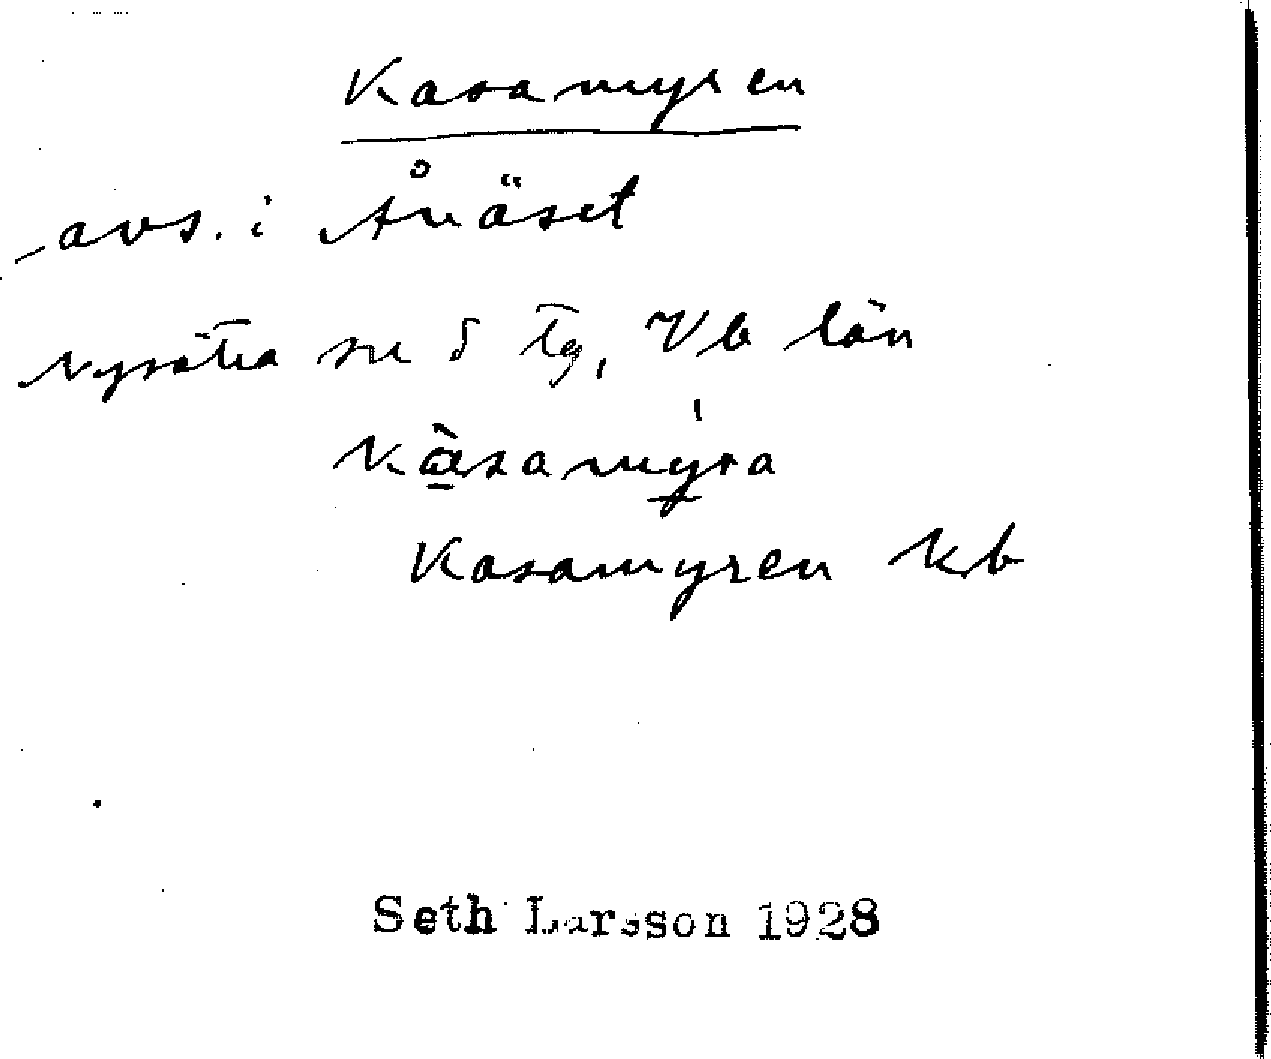 Kasamyren
avs. i Ånäset
Nysätra sn S Tg, Vb län
Kàsamyra
Kasamyren kb
Seth Larsson 1928